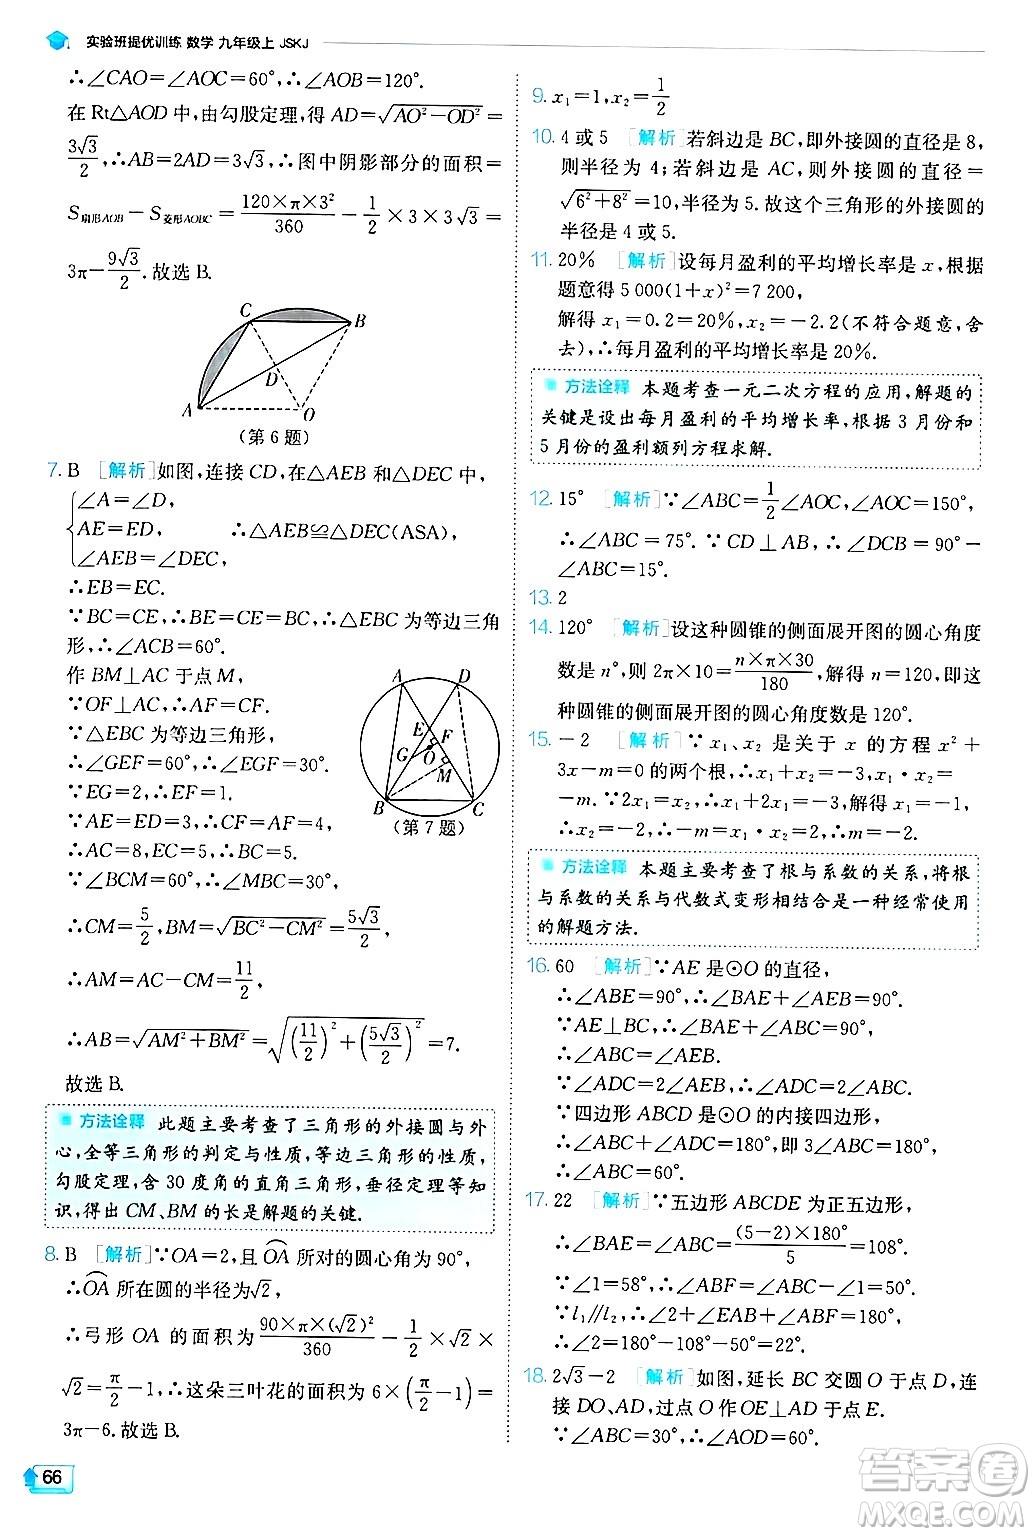 实验班提优训练 数学 九年级上 JSKJ
∴∠CAO=∠AOC=60°,∴∠AOB=120°.
在 Rt△AOD 中,由勾股定理,得 AD=√(AO²-OD²)=
3√3/2,∴AB=2AD=3√3,∴图中阴影部分的面积=
S扇形AOB-S菱形AOBC=120×π×3²/360-1/2×3×3√3=
3π-9√3/2.故选 B.
C
B
D
A
O
(第 6 题)
7. B [解析]如图,连接 CD,在△AEB 和△DEC 中,
∠A=∠D,
AE=ED, ∴△AEB≌△DEC(ASA),
∠AEB=∠DEC,
∴EB=EC.
∵BC=CE,∴BE=CE=BC,∴△EBC 为等边三角
形,∴∠ACB=60°.
作 BM⊥AC 于点 M,
∵OF⊥AC,∴AF=CF.
∵△EBC 为等边三角形,
∴∠GEF=60°,∴∠EGF=30°.
∵EG=2,∴EF=1.
∵AE=ED=3,∴CF=AF=4,
∴AC=8,EC=5,∴BC=5.
∵∠BCM=60°,∴∠MBC=30°,
A
D
E
F
G
O
M
B
C
(第 7 题)
∴CM=5/2,BM=√(BC²-CM²)=5√3/2,
∴AM=AC-CM=11/2,
∴AB=√(AM²+BM²)=√((11/2)²+(5√3/2)²)=7.
故选 B.
方法诠释 此题主要考查了三角形的外接圆与外
心,全等三角形的判定与性质,等边三角形的性质,
勾股定理,含 30 度角的直角三角形,垂径定理等知
识,得出 CM、BM 的长是解题的关键.
8. B [解析]∵OA=2,且 OA 所对的圆心角为 90°,
∴OA所在圆的半径为√2,
∴弓形 OA 的面积为90×π×(√2)²/360-1/2×√2×
√2=π/2-1,∴这朵三叶花的面积为 6×(π/2-1)=
3π-6.故选 B.
66
9. x₁=1,x₂=1/2
10. 4 或 5 [解析]若斜边是 BC,即外接圆的直径是 8,
则半径为 4;若斜边是 AC,则外接圆的直径=
√(6²+8²)=10,半径为 5.故这个三角形的外接圆的
半径是 4 或 5.
11. 20% [解析]设每月盈利的平均增长率是 x,根据
题意得 5 000(1+x)²=7 200,
解得 x₁=0.2=20%,x₂=-2.2(不符合题意,舍
去),∴每月盈利的平均增长率是 20%.
方法诠释 本题考查一元二次方程的应用,解题的
关键是设出每月盈利的平均增长率,根据 3 月份和
5 月份的盈利额列方程求解.
12. 15° [解析]∵∠ABC=1/2∠AOC,∠AOC=150°,
∴∠ABC=75°.∵CD⊥AB,∴∠DCB=90°-
∠ABC=15°.
13. 2
14. 120° [解析]设这种圆锥的侧面展开图的圆心角度
数是 n°,则 2π×10=n×π×30/180,解得 n=120,即这
种圆锥的侧面展开图的圆心角度数是 120°.
15. -2 [解析]∵x₁、x₂ 是关于 x 的方程 x²+
3x-m=0 的两个根,∴x₁+x₂=-3,x₁·x₂=
-m.∵2x₁+x₂=-4,∴x₁-3=-4,解得 x₁=-1,
∴x₂=-2,∴-m=x₁·x₂=2,∴m=-2.
方法诠释 本题主要考查了根与系数的关系,将根
与系数的关系与代数式变形相结合是一种经常使用
的解题方法.
16. 60 [解析]∵AE 是⊙O 的直径,
∴∠ABE=90°,∴∠BAE+∠AEB=90°.
∵AE⊥BC,∴∠BAE+∠ABC=90°,
∴∠ABC=∠AEB.
∵∠ADC=2∠AEB,∴∠ADC=2∠ABC.
∵四边形 ABCD 是⊙O 的内接四边形,
∴∠ABC+∠ADC=180°,即 3∠ABC=180°,
∴∠ABC=60°.
17. 22 [解析]∵五边形 ABCDE 为正五边形,
∴∠BAE=∠ABC=(5-2)×180°/5=108°.
∵∠1=58°,∴∠ABF=∠ABC-∠1=50°.
∵l₁//l₂,∴∠2+∠EAB+∠ABF=180°,
∴∠2=180°-108°-50°=22°.
18. 2√3-2 [解析]如图,延长 BC 交圆 O 于点 D,连
接 DO、AD,过点 O 作 OE⊥AD 于点 E.
∵∠ABC=30°,∴∠AOD=60°.
答案圈
MXQE.COM